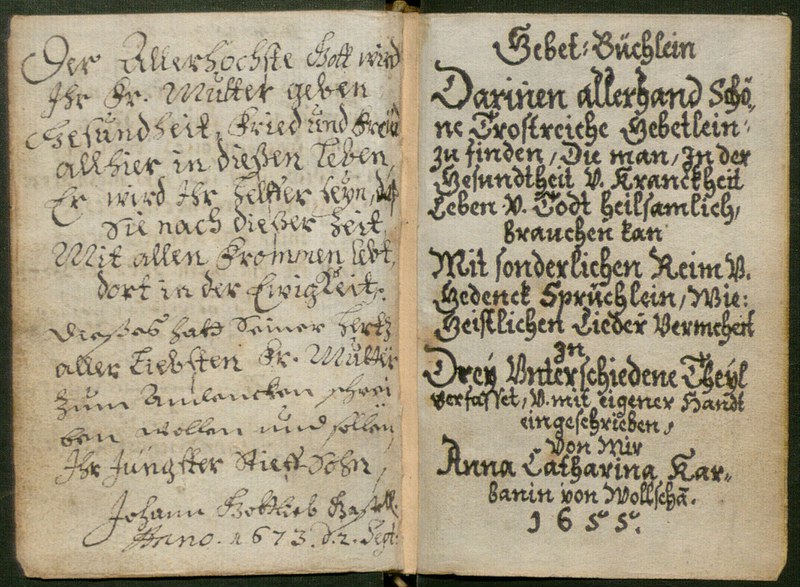 Der Allerhöchste Gott wird
Ihr Fr. Mutter geben
Gesundheit, Fried und
allhier in dießen Leben,
Er wird Ihr Helffer seyn, daß
Sie nach dießer Zeit,
Mit allen Frommen lebt,
dort in der Ewigkeit.
Dießes hatt Seiner Hertz
aller Liebsten Fr. Mutter
Zum Andencken schrei
ben wollen und sollen,
Ihr Jüngster Stieff Sohn,
Johann Gottlieb
Anno. 1673. d. 2. Sept:
Gebet=Büchlein
Darinen allerhand Schö,
ne Trostreiche Gebetlein
zu finden, Die man, In der
Gesundtheit V. Kranckheit
Leben V. Todt heilsamlich,
brauchen kan
Mit sonderlichen Reim V.
Gedenck Sprüchlein, Wie:
Geistlichen Lieder Vermehert
In
Drey Vnterschiedene Theyl
verfasset, V. mit eigener Handt
eingeschrieben,
von Mir
Anna Catharina Kar-
banin von Wollschā.
1655.